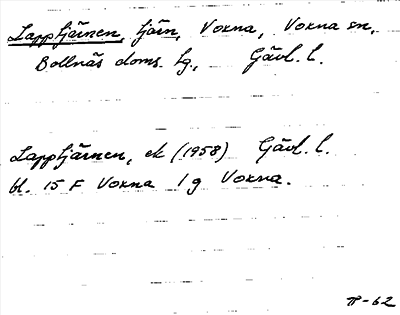 Lapptjärnen, tjärn, Voxna, Voxna sn,
Bollnäs doms. hg., Gävl. l.
Lapptjärnen, ek (1958) Gävl. l.
bl. 15 F Voxna 1 g Voxna.
-62